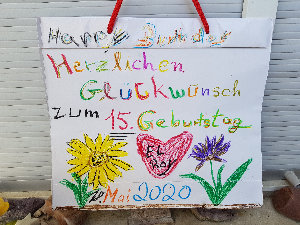 Happy
Herzlichen
Glückwünsch
zum 15. Geburtstag
Mai 2020